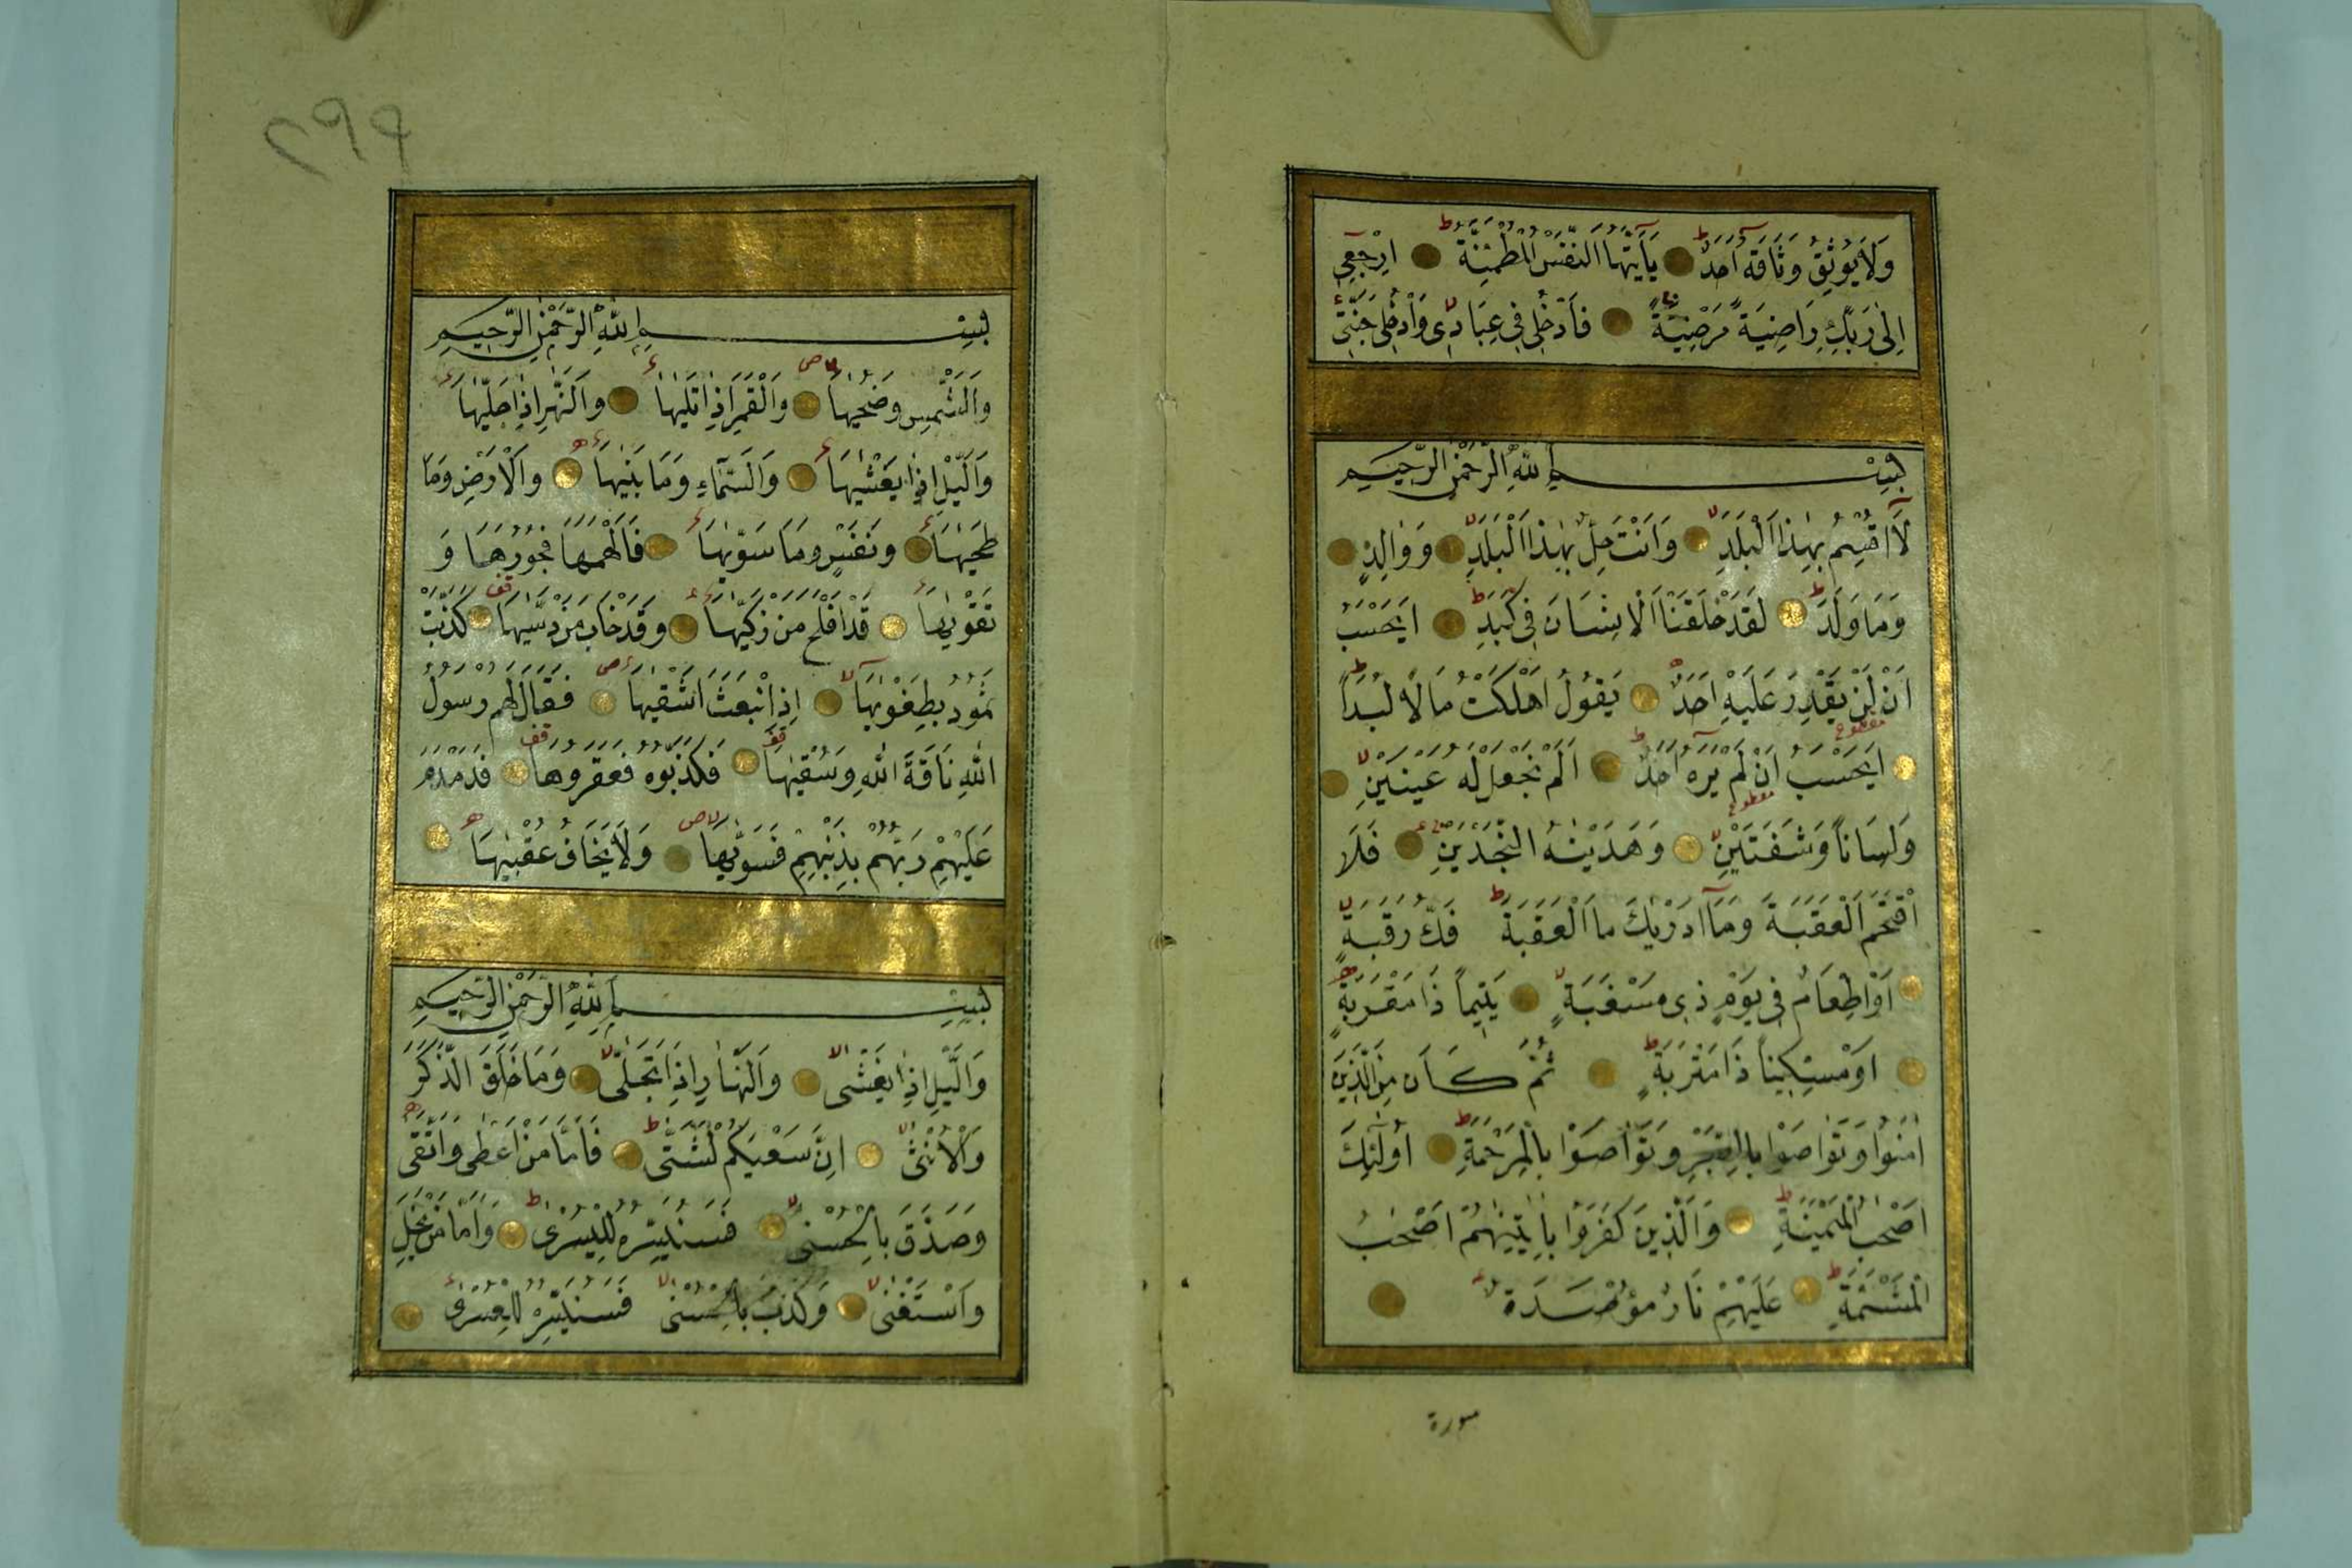 وَلَا يُوثِقُ وَثَاقَهُ اَحَدٌ يَآاَيَّتُهَا النَّفْسُ الْمُطْمَئِنَّةُ اِرْجِعِي
اِلٰى رَبِّكِ رَاضِيَةً مَرْضِيَّةً فَادْخُلِي فِي عِبَادِي وَادْخُلِي جَنَّتِي
بِسْمِ اللهِ الرَّحْمٰنِ الرَّحِيمِ
لَآ اُقْسِمُ بِهٰذَا الْبَلَدِ وَاَنْتَ حِلٌّ بِهٰذَا الْبَلَدِ وَوَالِدٍ
وَمَا وَلَدَ لَقَدْ خَلَقْنَا الْاِنْسَانَ فِي كَبَدٍ اَيَحْسَبُ
اَنْ لَنْ يَقْدِرَ عَلَيْهِ اَحَدٌ يَقُولُ اَهْلَكْتُ مَالًا لُبَدًا
اَيَحْسَبُ اَنْ لَمْ يَرَهُ اَحَدٌ اَلَمْ نَجْعَلْ لَهُ عَيْنَيْنِ
وَلِسَانًا وَشَفَتَيْنِ وَهَدَيْنٰهُ النَّجْدَيْنِ فَلَا
اقْتَحَمَ الْعَقَبَةَ وَمَآ اَدْرٰيكَ مَا الْعَقَبَةُ فَكُّ رَقَبَةٍ
اَوْ اِطْعَامٌ فِي يَوْمٍ ذِي مَسْغَبَةٍ يَتِيمًا ذَا مَقْرَبَةٍ
اَوْ مِسْكِينًا ذَا مَتْرَبَةٍ ثُمَّ كَانَ مِنَ الَّذِينَ
اٰمَنُوا وَتَوَاصَوْا بِالصَّبْرِ وَتَوَاصَوْا بِالْمَرْحَمَةِ اُولٰٓئِكَ
اَصْحٰبُ الْمَيْمَنَةِ وَالَّذِينَ كَفَرُوا بِاٰيٰتِنَا هُمْ اَصْحٰبُ
الْمَشْئَمَةِ عَلَيْهِمْ نَارٌ مُؤْصَدَةٌ
سورة
٢٩٩
بِسْمِ اللهِ الرَّحْمٰنِ الرَّحِيمِ
وَالشَّمْسِ وَضُحٰيهَا وَالْقَمَرِ اِذَا تَلٰيهَا وَالنَّهَارِ اِذَا جَلّٰيهَا
وَالَّيْلِ اِذَا يَغْشٰيهَا وَالسَّمَآءِ وَمَا بَنٰيهَا وَالْاَرْضِ وَمَا
طَحٰيهَا وَنَفْسٍ وَمَا سَوّٰيهَا فَاَلْهَمَهَا فُجُورَهَا وَ
تَقْوٰيهَا قَدْ اَفْلَحَ مَنْ زَكّٰيهَا وَقَدْ خَابَ مَنْ دَسّٰيهَا كَذَّبَتْ
ثَمُودُ بِطَغْوٰيهَا اِذِ انْبَعَثَ اَشْقٰيهَا فَقَالَ لَهُمْ رَسُولُ
اللهِ نَاقَةَ اللهِ وَسُقْيٰهَا فَكَذَّبُوهُ فَعَقَرُوهَا فَدَمْدَمَ
عَلَيْهِمْ رَبُّهُمْ بِذَنْبِهِمْ فَسَوّٰيهَا وَلَا يَخَافُ عُقْبٰيهَا
بِسْمِ اللهِ الرَّحْمٰنِ الرَّحِيمِ
وَالَّيْلِ اِذَا يَغْشٰى وَالنَّهَارِ اِذَا تَجَلّٰى وَمَا خَلَقَ الذَّكَرَ
وَالْاُنْثٰى اِنَّ سَعْيَكُمْ لَشَتّٰى فَاَمَّا مَنْ اَعْطٰى وَاتَّقٰى
وَصَدَّقَ بِالْحُسْنٰى فَسَنُيَسِّرُهُ لِلْيُسْرٰى وَاَمَّا مَنْ بَخِلَ
وَاسْتَغْنٰى وَكَذَّبَ بِالْحُسْنٰى فَسَنُيَسِّرُهُ لِلْعُسْرٰى